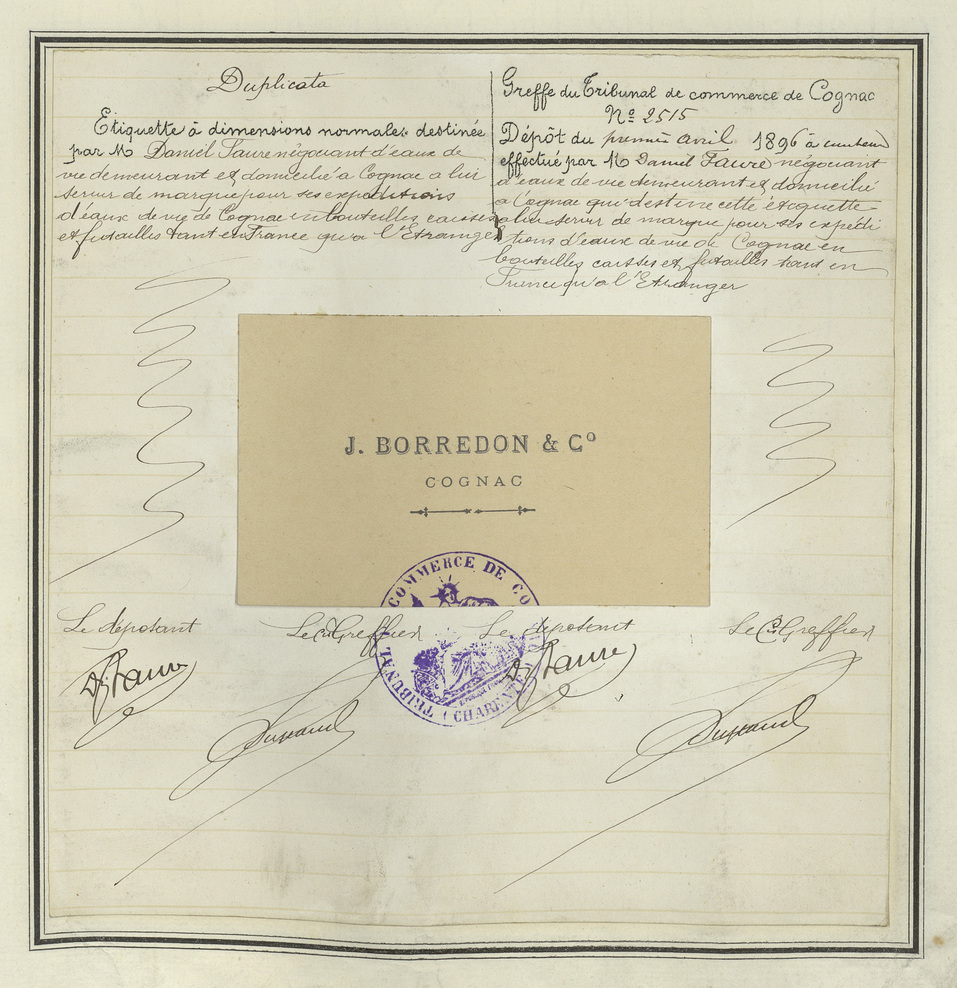 Duplicata
Etiquette à dimensions normales destinée
par M Daniel Faure négociant d'eaux de
vie demeurant et domicilié à Cognac a lui
servir de marque pour ses expéditions
d'eaux de vie de Cognac en bouteilles caisses
et futailles tant en France qu'a l'Etranger
Greffe du Tribunal de commerce de Cognac
Nº 2515
Dépôt du premier avril 1896 à
effectué par M Daniel Faure négociant
d'eaux de vie demeurant et domicilié
a Cognac qui destine cette etiquette
a lui servir de marque pour ses expédi
tions d'eaux de vie de Cognac en
bouteilles caisses et futailles tant en
France qu'a l'Etranger
J. BORREDON & Cº
COGNAC
TRIBUNAL COMMERCE DE CO
(CHARENTE)
Le déposant
Le Cis Greffier
Le déposant
Le Cis Greffier
D. Faure
D. Faure